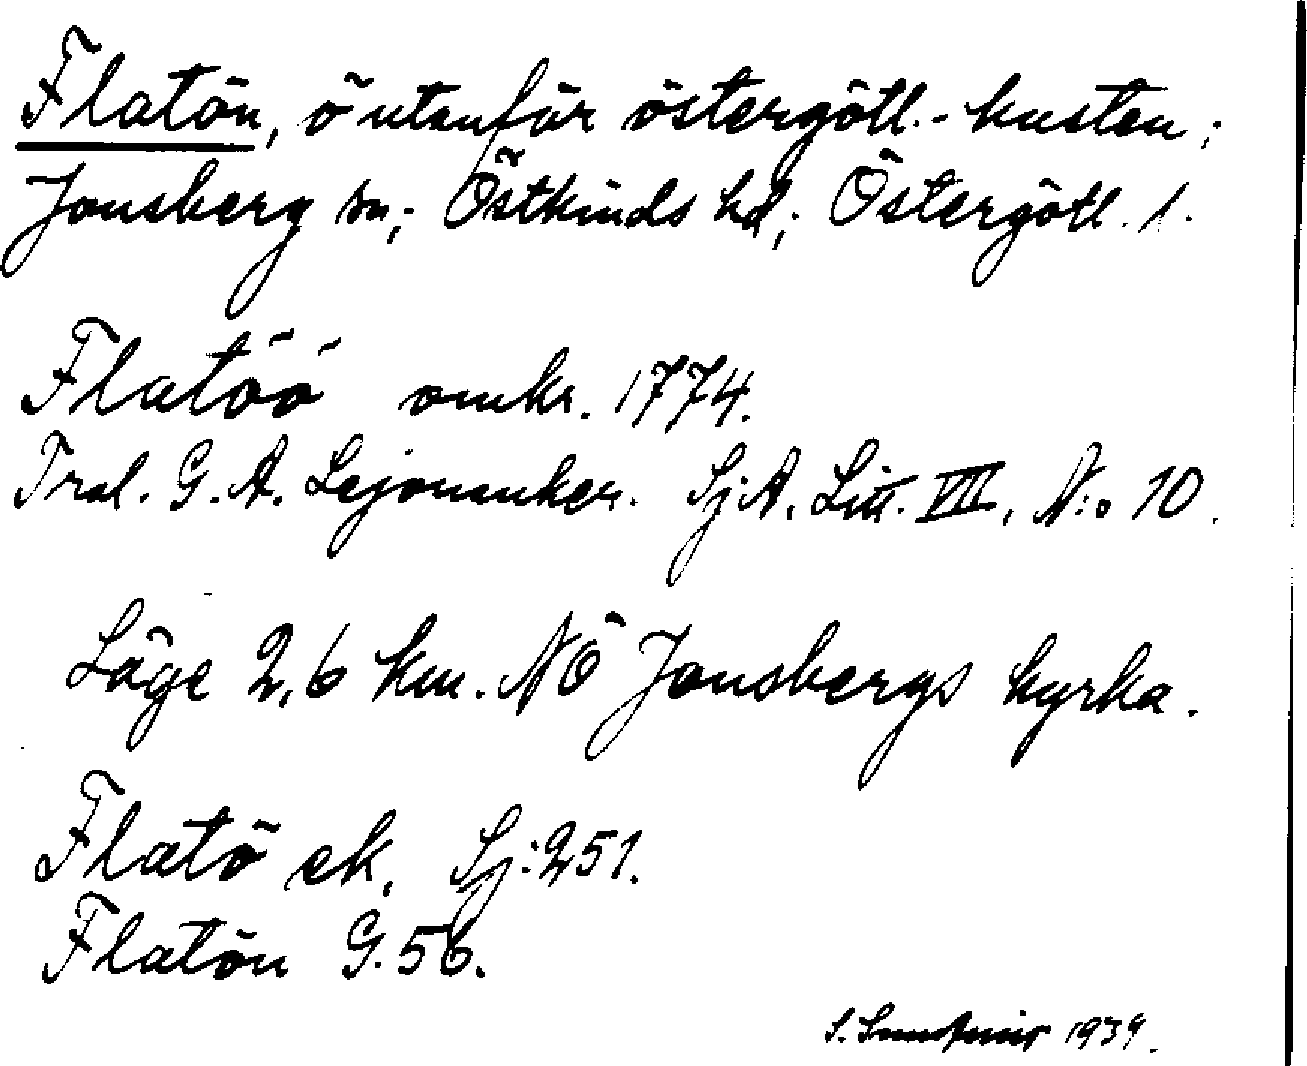 Flatön, ö utanför östergötl.-kusten;
Jonsberg sn; Östkinds hd; Östergötl. l.
Flatöö omkr. 1774.
Tral. G. A. Lejonanker. Sj.A. Litt. VIII, N:o 10.
Läge 2,6 km. NÖ Jonsbergs kyrka.
Flatö ek. Sj:251.
Flatön G.56.
S. 1939.